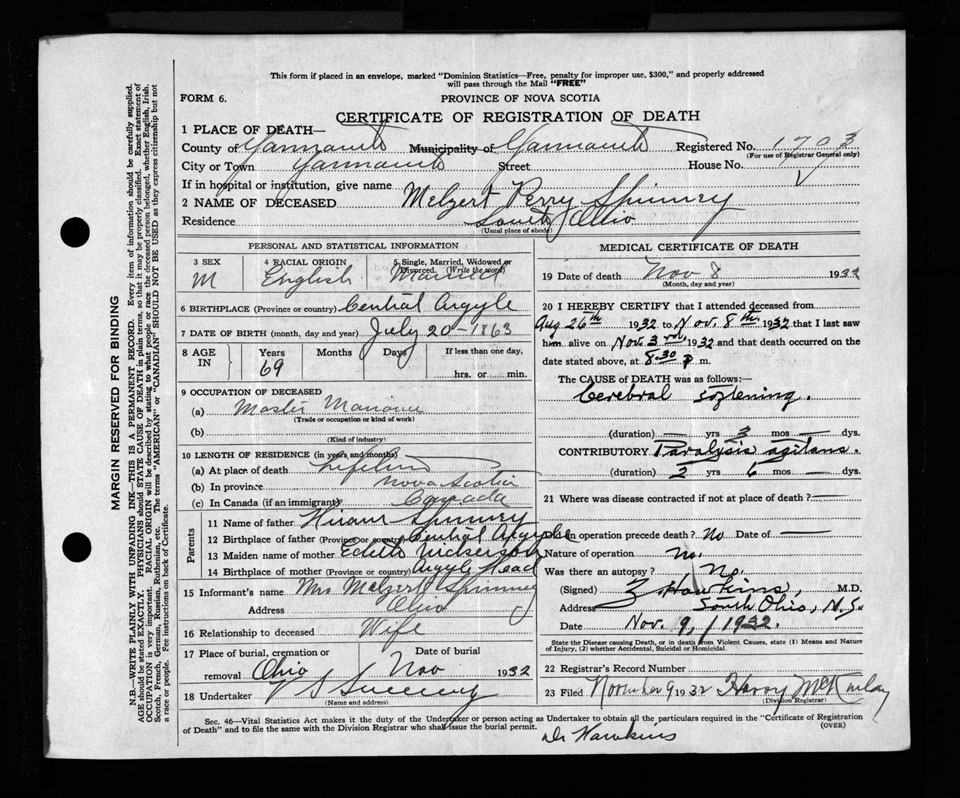 This form if placed in an envelope, marked "Dominion Statistics—Free, penalty for improper use, $300," and properly addressed
will pass through the Mail "FREE"
FORM 6.
PROVINCE OF NOVA SCOTIA
CERTIFICATE OF REGISTRATION OF DEATH
1 PLACE OF DEATH—
County of Yarmouth Municipality of Yarmouth Registered No. 1703
(For use of Registrar General only)
City or Town Yarmouth Street House No.
If in hospital or institution, give name
2 NAME OF DECEASED Melzert Perry Spinney
Residence South Ohio
(Usual place of abode)
PERSONAL AND STATISTICAL INFORMATION
3 SEX 4 RACIAL ORIGIN 5 Single, Married, Widowed or
Divorced. (Write the word)
M English Married
6 BIRTHPLACE (Province or country) Central Argyle
7 DATE OF BIRTH (month, day and year) July 20-1863
8 AGE IN Years Months Days If less than one day,
69 hrs. or min.
9 OCCUPATION OF DECEASED
(a) Master
(Trade or occupation or kind of work)
(b)
(Kind of industry)
10 LENGTH OF RESIDENCE (in years and months)
(a) At place of death Lifetime
(b) In province Nova Scotia
(c) In Canada (if an immigrant) Canada
Parents
11 Name of father Hiram Spinney
12 Birthplace of father (Province or country) Central Argyle
13 Maiden name of mother Edith Nickerson
14 Birthplace of mother (Province or country) Argyle Head
15 Informant's name Mrs Melzert Spinney
Address Ohio
16 Relationship to deceased Wife
17 Place of burial, cremation or Date of burial
removal Ohio Nov 1932
18 Undertaker V S Sweeny
(Name and address)
MEDICAL CERTIFICATE OF DEATH
19 Date of death Nov 8 1932
(Month, day and year)
20 I HEREBY CERTIFY that I attended deceased from
Aug 26th 1932 to Nov. 8th 1932 that I last saw
him alive on Nov. 3rd 1932 and that death occurred on the
date stated above, at 8.30 p m.
The CAUSE OF DEATH was as follows:—
Cerebral softening.
(duration) — yrs 3 mos — dys.
CONTRIBUTORY Paralysis agitans.
(duration) 2 yrs 6 mos — dys.
21 Where was disease contracted if not at place of death? —
Did an operation precede death? No Date of —
Nature of operation no.
Was there an autopsy? No.
(Signed) Z Hawkins, M.D.
Address South Ohio, N.S.
Date Nov. 9, 1932.
State the Disease causing Death, or in death from Violent Causes, state (1) Means and Nature
of Injury, (2) whether Accidental, Suicidal or Homicidal.
22 Registrar's Record Number
23 Filed November 9 1932 Harry McKinlay
(Division Registrar)
Sec. 46—Vital Statistics Act makes it the duty of the Undertaker or person acting as Undertaker to obtain all the particulars required in the "Certificate of Registration
of Death" and to file the same with the Division Registrar who shall issue the burial permit.
(OVER)
Dr Hawkins
MARGIN RESERVED FOR BINDING
N.B.—WRITE PLAINLY WITH UNFADING INK—THIS IS A PERMANENT RECORD. Every item of information should be carefully supplied.
AGE should be stated EXACTLY. PHYSICIANS should STATE CAUSE OF DEATH in plain terms, so that it may be properly classified. Exact statement of
OCCUPATION is very important. RACIAL ORIGIN will be described by stating to what people or race the deceased person belonged, whether English, Irish,
Scotch, French, German, Russian, Ruthenian, etc. The terms "AMERICAN" or "CANADIAN" SHOULD NOT BE USED as they express citizenship but not
a race or people. Fee instructions on back of Certificate.